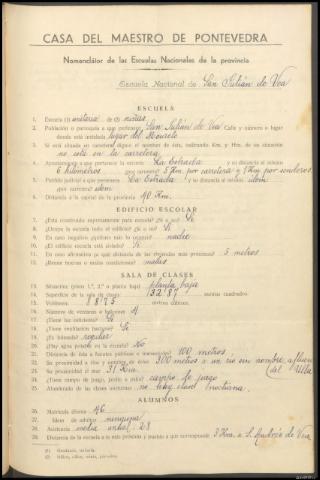 CASA DEL MAESTRO DE PONTEVEDRA
Nomenclátor de las Escuelas Nacionales de la provincia
Escuela Nacional de San Julián de Vea
ESCUELA
1. Escuela (1) unitaria de (2) niñas
2. Población o parroquia a que pertenece San Julián de Vea Calle y número o lugar
donde está instalada lugar del
3. Si está situada en carretera dígase el nombre de ésta, indicando Km. y Hm. de su situación
no está en la carretera
4. Ayuntamiento a que pertenece la escuela La Estrada y su distancia al mismo
6 kilómetros por carretera 5 Km. por carretera y 1 Km. por senderos
5. Partido judicial a que pertenece La Estrada y su distancia al mismo idem
por carretera idem
6. Distancia a la capital de la provincia 40 Km.
EDIFICIO ESCOLAR
7. ¿Está construído expresamente para escuela? (Sí o no) Sí
8. ¿Ocupa la escuela todo el edificio? (Sí o no) Sí
9. En caso negativo ¿quiénes más lo ocupan? nadie
10. ¿El edificio escuela está aislado? Sí
11. En caso afirmativo ¿a qué distancia de las viviendas más próximas? 5 metros
12. ¿Reune buenas o malas condiciones? malas
SALA DE CLASES
13. Situación: (pisos 1.º, 2.º o planta baja) planta baja
14. Superficie de la sala de clases: 132'87 metros cuadrados.
15. Volumen: metros cúbicos.
16. Número de ventanas o balcones 4
17. ¿Tiene luz suficiente? Sí
18. ¿Tiene ventilación bastante? Sí
19. ¿Es húmeda? regular
20. ¿Hay agua potable en la escuela? No
21. Distancia de ésta a fuentes públicas o manantiales 100 metros
22. Su proximidad a ríos y nombre de éstos 300 metros a un río sin nombre, afluente
23. Su proximidad al mar 31 Km. (del Ulla
24. ¿Tiene campo de juego, jardín o patio? campo de juego
25. Alumbrado de las clases nocturnas no hay clase nocturna
ALUMNOS
26. Matrícula diurna 46
27. Idem de adultos ninguna
28. Asistencia media anual 28
29. Distancia de la escuela a la más próxima y pueblo a que corresponde 3 Km. a S. Andrés de Vea
(1) Graduada, unitaria.
(2) Niños, niñas, mixta, párvulos.